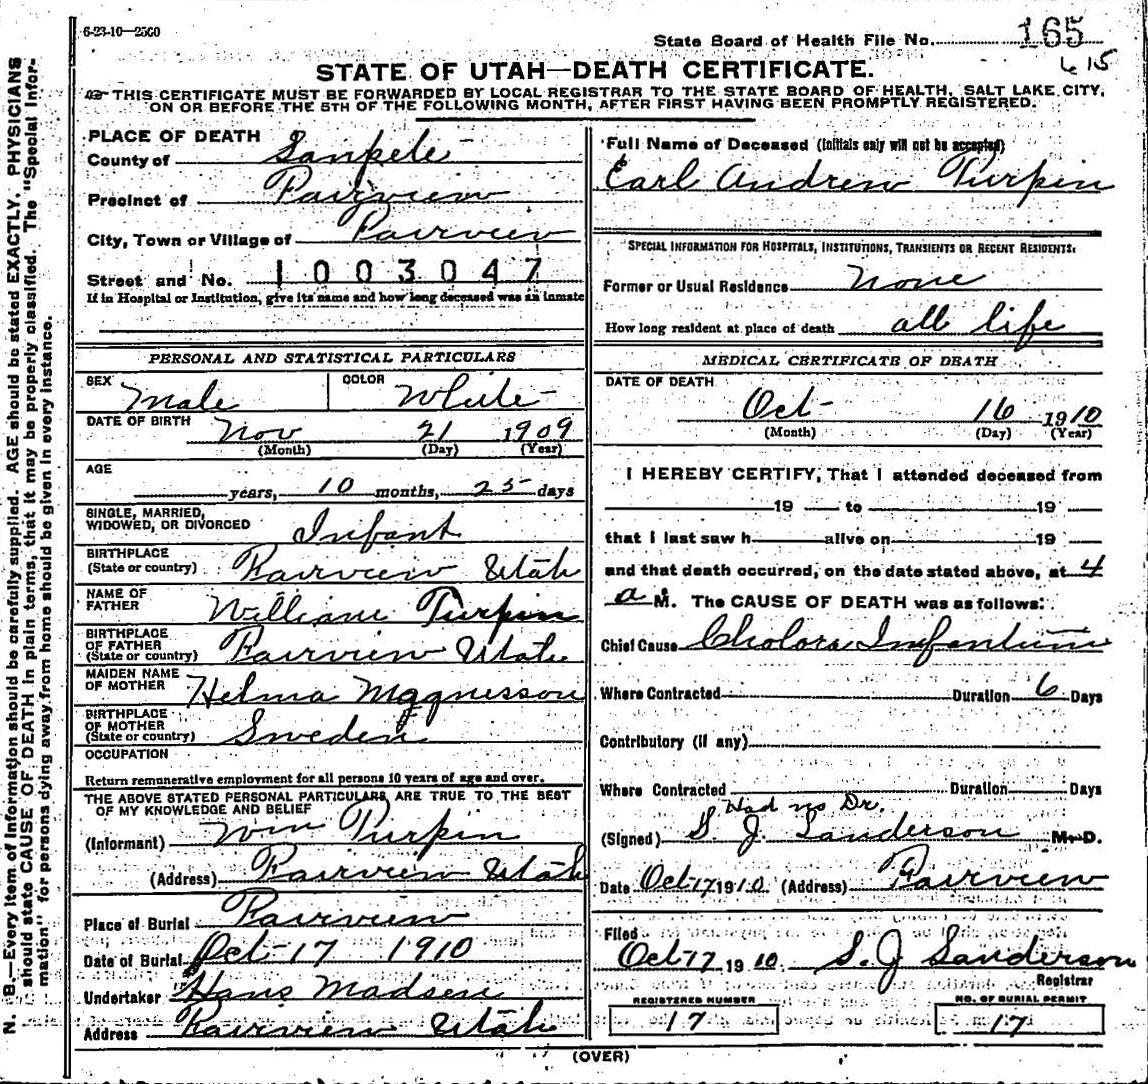 6-23-10—2500
State Board of Health File No. 165
615
STATE OF UTAH—DEATH CERTIFICATE.
THIS CERTIFICATE MUST BE FORWARDED BY LOCAL REGISTRAR TO THE STATE BOARD OF HEALTH, SALT LAKE CITY,
ON OR BEFORE THE 5TH OF THE FOLLOWING MONTH, AFTER FIRST HAVING BEEN PROMPTLY REGISTERED.
PLACE OF DEATH
County of Sanpete
Precinct of Fairview
City, Town or Village of Fairview
Street and No. 1003047
If in Hospital or Institution, give its name and how long deceased was an inmate
PERSONAL AND STATISTICAL PARTICULARS
SEX Male COLOR White
DATE OF BIRTH Nov 21 1909
(Month) (Day) (Year)
AGE
years, 10 months, 25 days
SINGLE, MARRIED,
WIDOWED, OR DIVORCED Infant
BIRTHPLACE
(State or country) Fairview Utah
NAME OF
FATHER William Turpin
BIRTHPLACE
OF FATHER
(State or country) Fairview Utah
MAIDEN NAME
OF MOTHER Helma Magnusson
BIRTHPLACE
OF MOTHER
(State or country) Sweden
OCCUPATION
Return remunerative employment for all persons 10 years of age and over.
THE ABOVE STATED PERSONAL PARTICULARS ARE TRUE TO THE BEST
OF MY KNOWLEDGE AND BELIEF
(Informant) Wm Turpin
(Address) Fairview Utah
Place of Burial Fairview
Date of Burial Oct 17 1910
Undertaker Hans Madsen
Address Fairview Utah
Full Name of Deceased (Initials only will not be accepted)
Earl Andrew Turpin
SPECIAL INFORMATION FOR HOSPITALS, INSTITUTIONS, TRANSIENTS OR RECENT RESIDENTS:
Former or Usual Residence None
How long resident at place of death all life
MEDICAL CERTIFICATE OF DEATH
DATE OF DEATH
Oct 16 1910
(Month) (Day) (Year)
I HEREBY CERTIFY, That I attended deceased from
19 to 19
that I last saw h alive on 19
and that death occurred, on the date stated above, at 4
a M. The CAUSE OF DEATH was as follows:
Chief Cause Cholora Infantum
Where Contracted Duration 6 Days
Contributory (if any)
Where Contracted Duration Days
Had no Dr.
(Signed) S. J. Sanderson M. D.
Date Oct 17 1910 (Address) Fairview
Filed
Oct 17 1910 S. J Sanderson
Registrar
REGISTERED NUMBER
17
NO. OF BURIAL PERMIT
17
(OVER)
N. B.—Every item of information should be carefully supplied. AGE should be stated EXACTLY. PHYSICIANS
should state CAUSE OF DEATH in plain terms, that it may be properly classified. The "Special Infor-
mation" for persons dying away from home should be given in every instance.